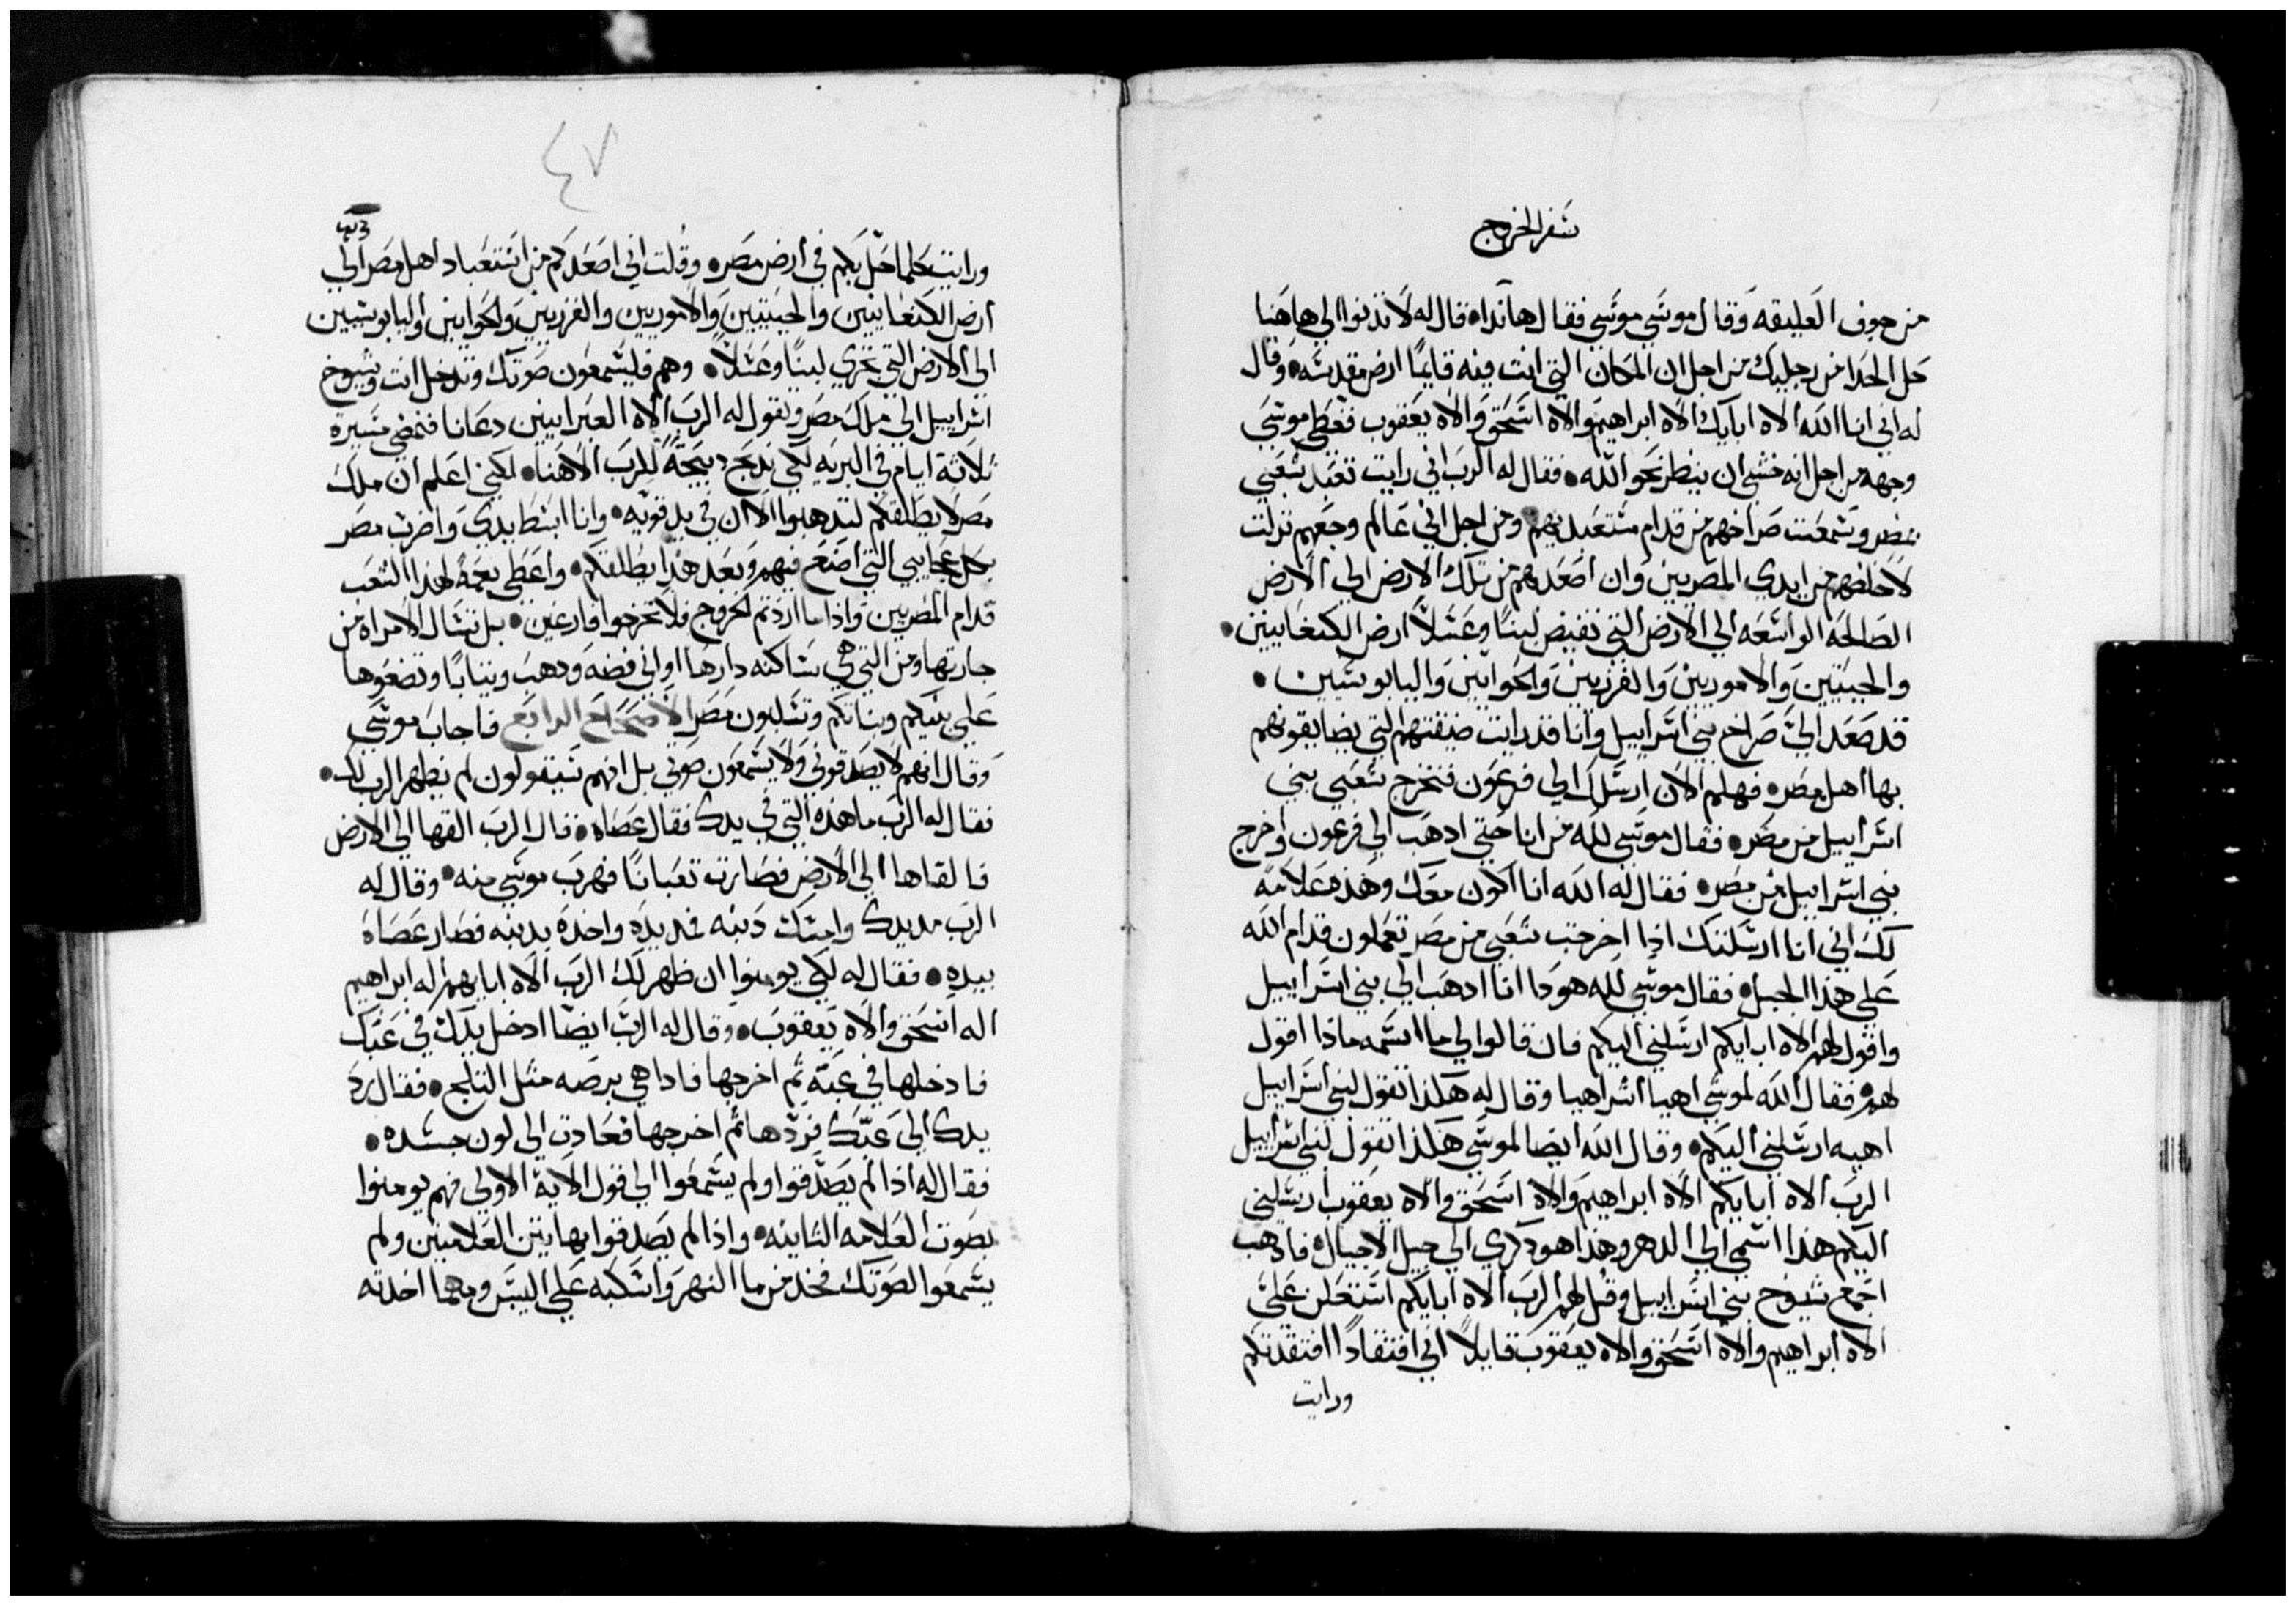 سفر الخروج
من جوف العليقه وقال موسي موسي فقال هانذا قال له لا تدنوا الي هاهنا
حل الحدا من رجليك من اجل ان المكان التي انت فيه قايمًا ارض مقدسه وقال
له اني انا الله الاه ابايك الاه ابراهيم والاه اسحق والاه يعقوب فغطي موسي
وجهه من اجل انه خشي ان ينظر نحو الله فقال له الرب اني رايت تعبد شعبي
بمصر وسمعت صراخهم من قدام مستعبديهم ومن اجل اني عالم وجعهم نزلت
لاخلصهم من ايدي المصريين وان اصعدهم من تلك الارض الي الارض
الصالحه الواسعه الي الارض التي تفيض لبنًا وعسلاً ارض الكنعانيين
والحيتيين والاموريين والفرزيين والحوانين واليابوسيين
قد صعد اليّ صراخ بني اسراييل وانا قد رايت ضيقتهم التي يضايقونهم
بها اهل مصر فهلم الان ارسلك الي فرعون فتخرج شعبي بني
اسراييل من مصر فقال موسي لله من انا حتي ادهب الي فرعون واخرج
بني اسراييل من مصر فقال له الله انا اكون معك وهذه علامه
لك اني انا ارسلتك اذا اخرجت شعبي من مصر تعملون قدام الله
علي هذا الجبل فقال موسي لله هودا انا ادهب الي بني اسراييل
واقول لهم الاه ابايكم ارسلني اليكم فان قالوا لي ما اسمه ماذا اقول
لهم فقال الله لموسي اهيا اشراهيا وقال له هكذا تقول لبني اسراييل
اهيه ارسلني اليكم وقال الله ايضا لموسي هكذا تقول لبني اسراييل
الرب الاه ابايكم الاه ابراهيم والاه اسحق والاه يعقوب ارسلني
اليكم هذا اسمي الي الدهر وهذا هو ذكري الي جيل الاجيال فادهب
اجمع شيوخ بني اسراييل وقل لهم الرب الاه ابايكم استعلن عليّ
الاه ابراهيم والاه اسحق والاه يعقوب قايلاً اني افتقادًا افتقدتكم
ورايت
٤٧
ورايت كلما حل بكم في ارض مصر وقلت اني اصعدكم من استعباد اهل مصر الي
ارض الكنعانيين والحيتيين والاموريين والفرزيين والحوانين واليابوسيين
الي الارض التي تجري لبنًا وعسلاً وهم فليسمعون صوتك وتدخل انت وشيوخ
اسراييل الي ملك مصر وتقول له الرب الاه العبرانيين دعانا فنمضي مسيرة
ثلاثة ايام في البريه لكي ندبح دبيحةً للرب الاهنا لكني اعلم ان ملك
مصر لا يطلقكم لتدهبوا الا ان في يد قويه وانا ابسط يدي واضرب مصر
بكل عجايبي التي اصنع فيهم وبعد هذا يطلقكم واعطي نعمة لهذا الشعب
قدام المصريين واذا ما اردتم الخروج فلا تخرجوا فارغين بل تسال الامراه من
جارتها ومن التي هي ساكنه دارها اواني فضه ودهب وثيابًا وتضعوها
علي بنيكم وبناتكم وتسلبون مصر الاصحاح الرابع فاجاب موسي
وقال انهم لا يصدقوني ولا يسمعون صوتي بل انهم سيقولون لم يظهر الرب لك
فقال له الرب ما هذه التي في يدك فقال عصاه قال الرب القها الي الارض
فالقاها الي الارض فصارت تعبانًا فهرب موسي منه وقال له
الرب مد يدك وامسك دنبه فمد يده واخده بدنبه فصار عصاه
بيده فقال له لكي يومنوا ان ظهر لك الرب الاه ابايهم اله ابراهيم
اله اسحق والاه يعقوب وقال له الرب ايضًا ادخل يدك في عبك
فادخلها في عبه ثم اخرجها فادا هي برصه مثل الثلج فقال رد
يدك الي عبك فردها ثم اخرجها فعادت الي لون جسده
فقال له اذا لم يصدقوا ولم يسمعوا الي قول الاية الاولي فهم يومنوا
بصوت العلامه الثانيه واذا لم يصدقوا بهاتين العلامتين ولم
يسمعوا لصوتك فخد من ما النهر واسكبه علي اليبس ومهما اخدته